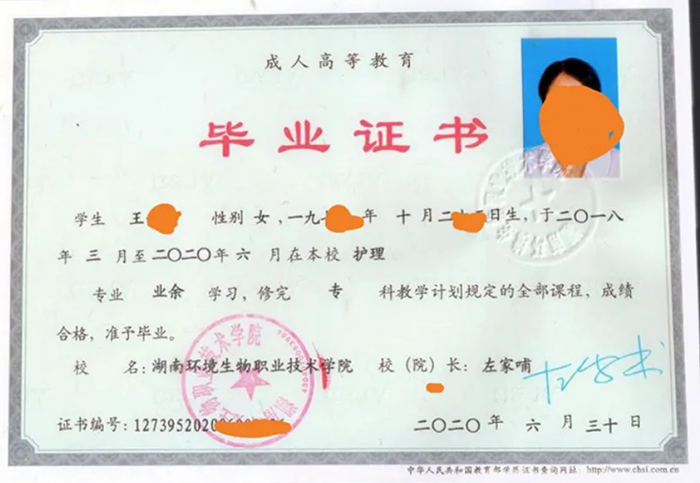 成人高等教育
毕业证书
学生 王 性别 女,一九 年 十 月二十 日生,于二〇一八
年 三 月至二〇二〇年 六 月在本校 护理
专业 业余 学习,修完 专 科教学计划规定的全部课程,成绩
合格,准予毕业。
校 名:湖南环境生物职业技术学院 校(院)长: 左家哺
证书编号:127395202
二〇二〇年 六 月 三十 日
中华人民共和国教育部学历证书查询网址: http://www.chsi.com.cn